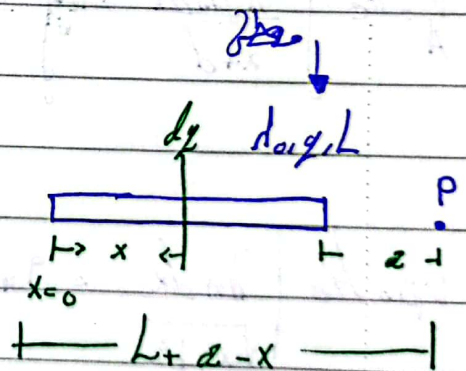 dq λ₀, q, L
P
x a
x=0
L + a - x